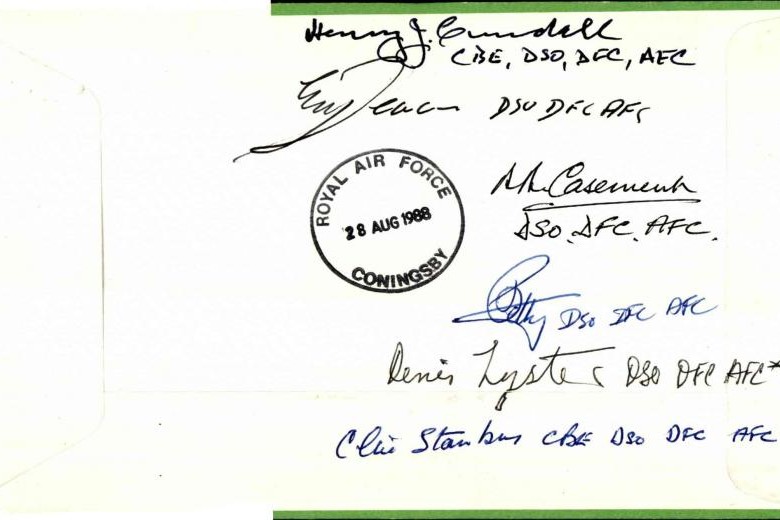 Henry J. Cundall
CBE, DSO, DFC, AFC
DSO DFC AFC
ROYAL AIR FORCE
28 AUG 1988
CONINGSBY
Casement
DSO, DFC, AFC.
DSO DFC AFC
Denis Lyster DSO DFC AFC*
CBE DSO DFC AFC